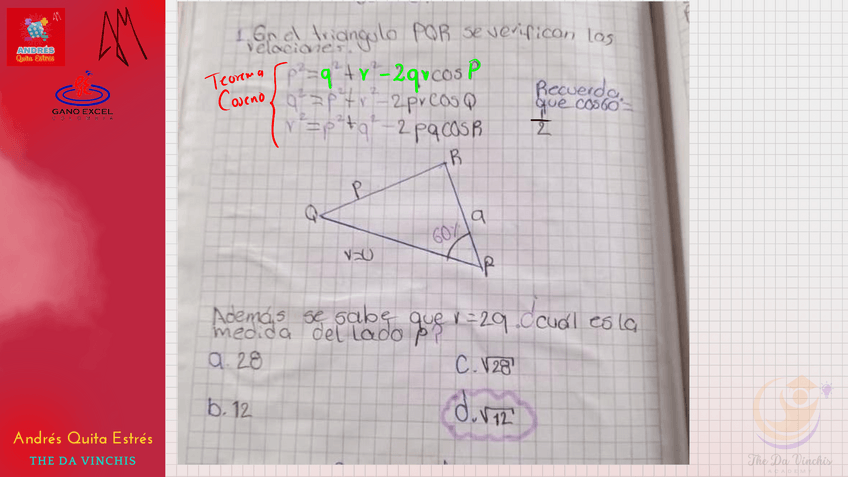 ANDRÉS
Quita Estrés
GANO EXCEL
1. En el triangulo PQR se verifican las
relaciones.
Teorema
Coseno
p²=q²+r²-2qrcosP
q²=p²+r²-2prcosQ
r²=p²+q²-2pqcosR
Recuerda
que cos60=
1/2
R
p
Q
q
60°
r=u
P
Además se sabe que r=2q. ¿cuál es la
medida del lado p?
a. 28
c. √28
b. 12
d. √12
Andrés Quita Estrés
THE DA VINCHIS
The Da Vinchis